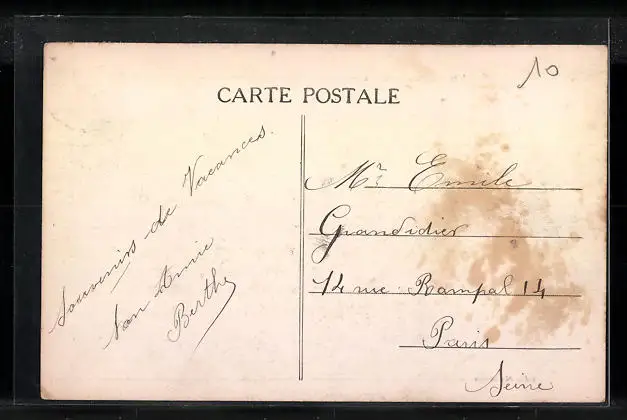 10
CARTE POSTALE
Souvenirs de Vacances.
Ton Amie
Berthe
Mr Emile
Grandidier
14 rue Rampal 14
Paris
Seine